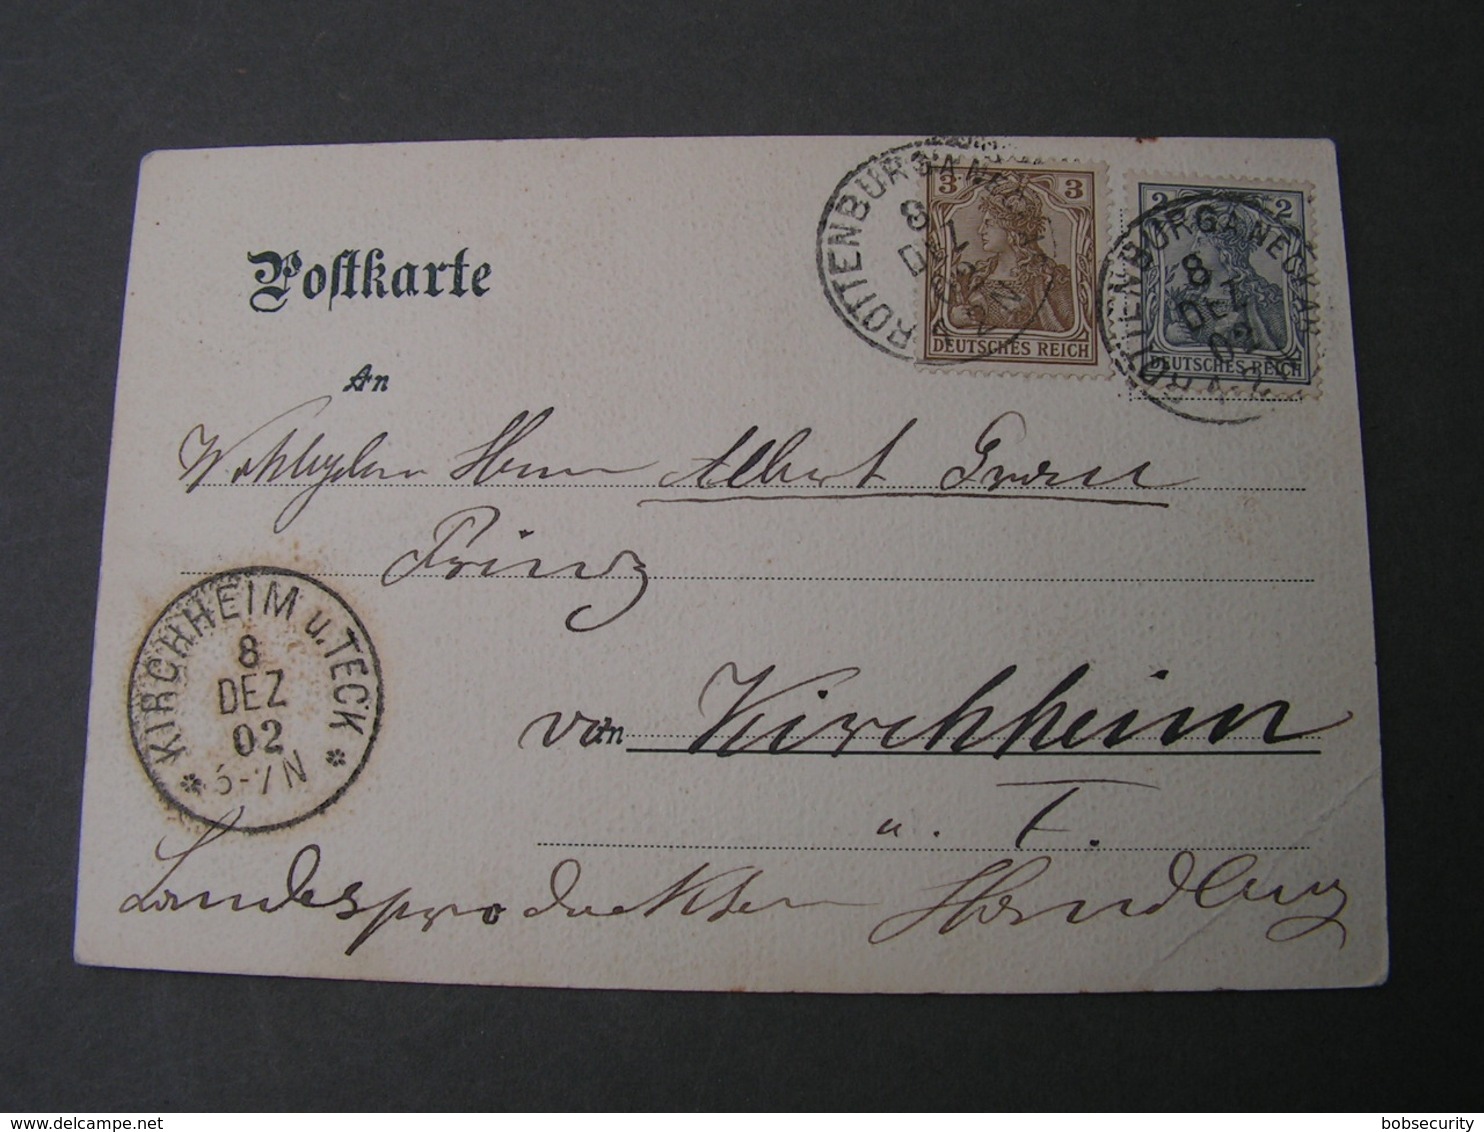 Postkarte
An
ROTTENBURG A NECKAR
8 DEZ 02
3
3
DEUTSCHES REICH
ROTTENBURG A NECKAR
8
DEZ
02
2
2
DEUTSCHES REICH
Herrn Albert
Prinz
KIRCHHEIM u. TECK
8
DEZ
02
6-7N
Kirchheim
u. T.
Landesprodukten Handlung
bobsecurity